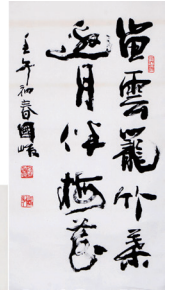 留雲籠竹葉
邀月伴梅花
壬午初春國